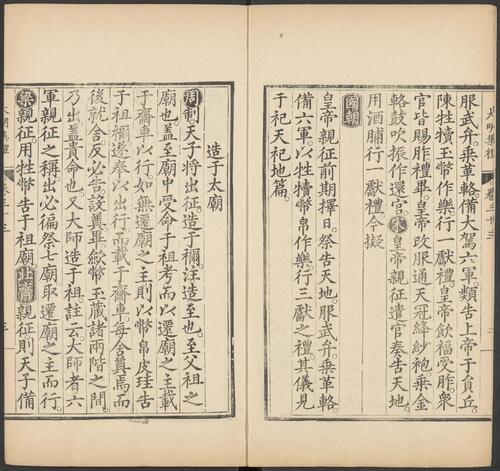 服武弁乗革輅備大駕六軍類告上帝于負丘
陳牲犢玉幣作樂行一獻禮皇帝飲福受胙衆
官皆賜胙禮畢皇帝改服通天冠絳紗袍乗金
輅鼓吹振作還宫宋皇帝親征遣官奏告天地
用酒脯行一獻禮今擬
國朝
皇帝親征前期擇日祭告天地服武弁乗革輅
備六軍以牲犢幣帛作樂行三獻之禮其儀見
于祀天祀地篇
造于太廟
周制天子將出征造于禰注造至也至父祖之
廟也蓋至廟中受命于祖考而以遷廟之主載
于齋車以行如無遷廟之主則以幣帛皮珪告
于祖禰遂奉以出行而載于齋車每舍奠焉而
後就舍反必告設奠畢歛幣玉藏諸兩階之間
乃出蓋貴命也又大師造于祖註云大師者六
軍親征之稱出必徧祭七廟取遷廟之主而行
梁親征用牲幣告于祖廟北齊親征則天子備